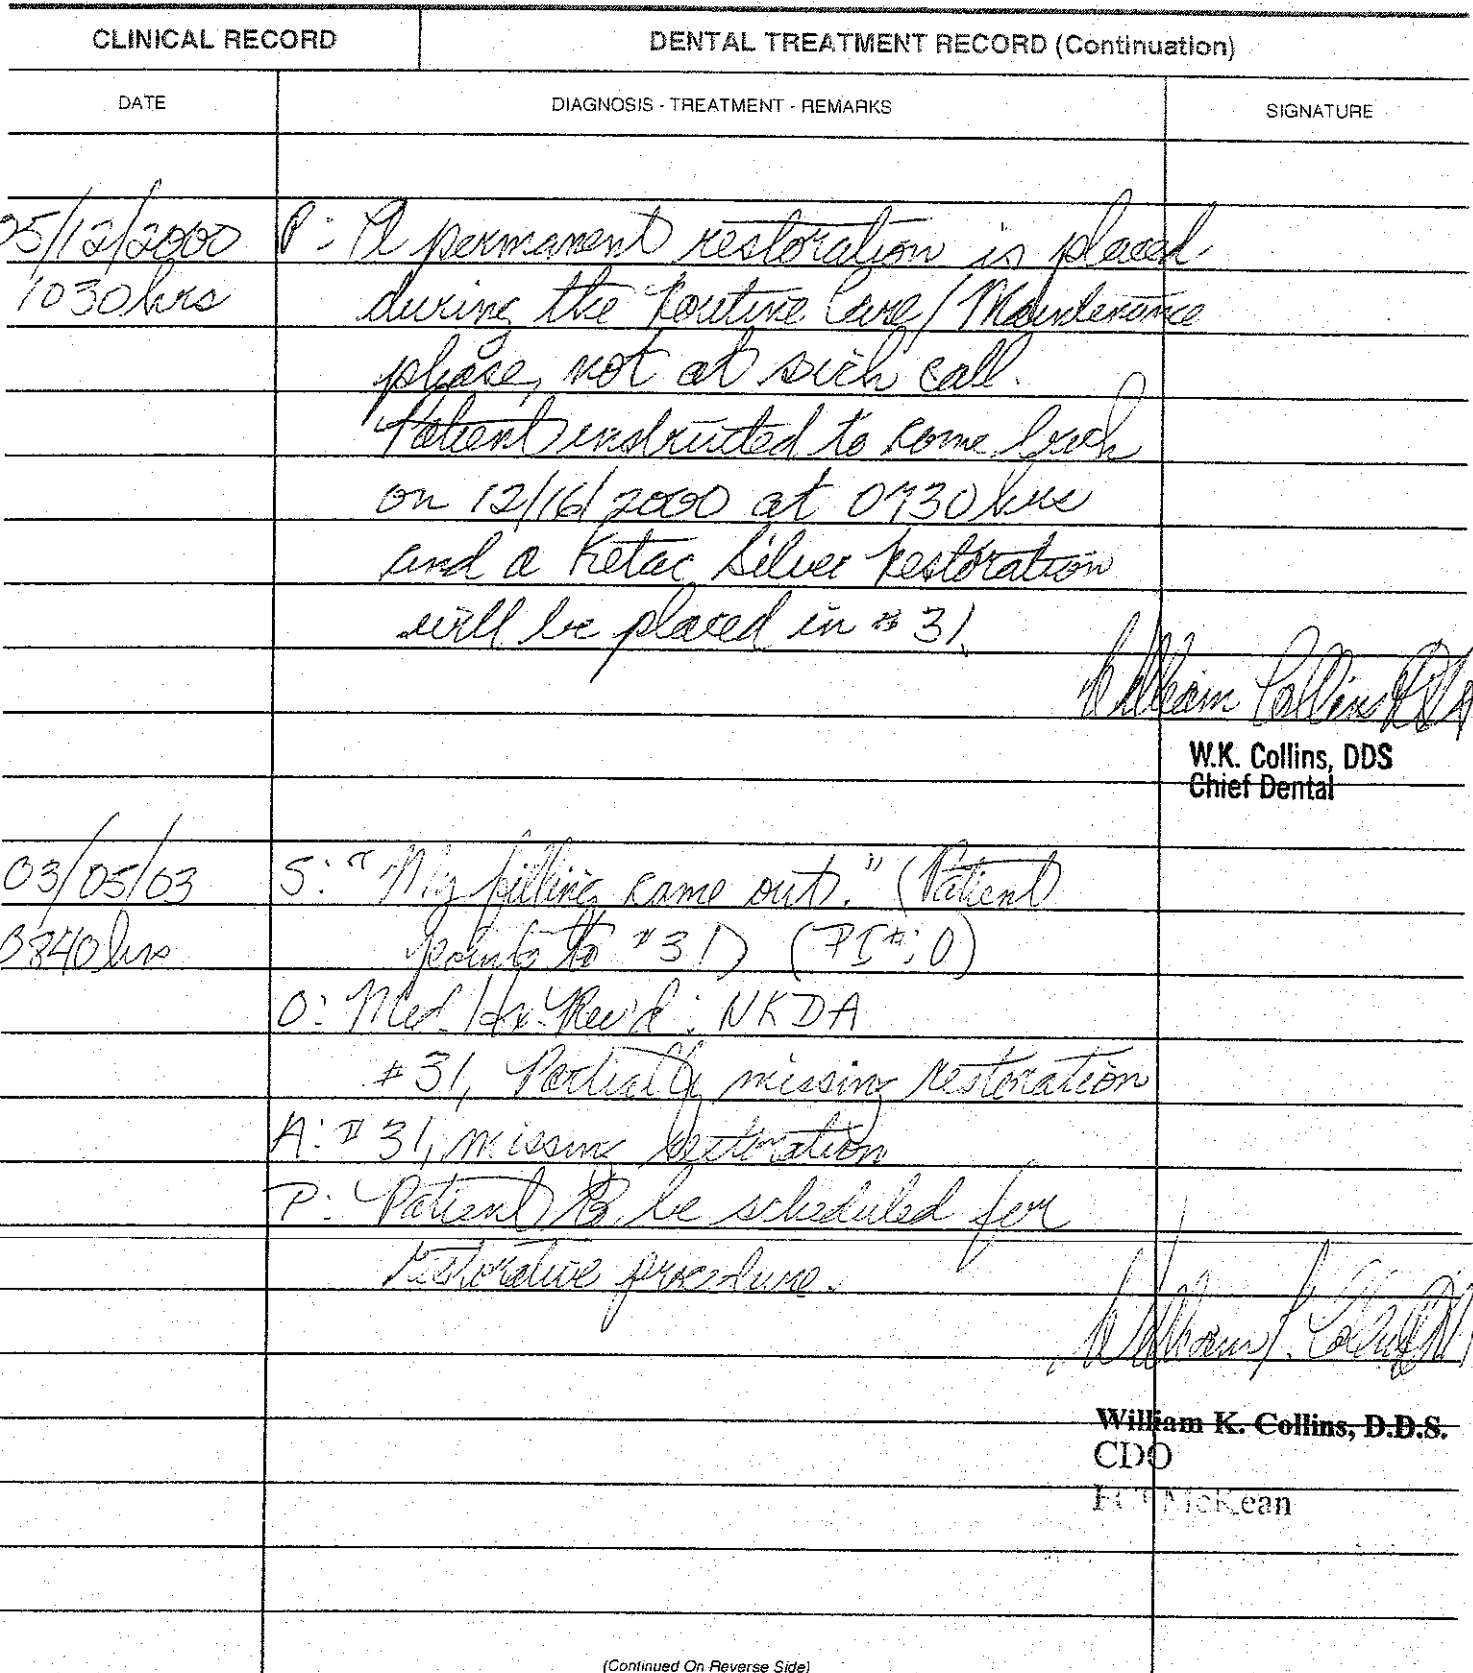 CLINICAL RECORD
DENTAL TREATMENT RECORD (Continuation)
DATE
DIAGNOSIS - TREATMENT - REMARKS
SIGNATURE
05/12/2000 P: A permanent restoration is placed
1030hrs during the Routine Care/Maintenance
phase, not at sick call.
Patient instructed to come back
on 12/16/2000 at 0730hrs
and a Ketac Silver Restoration
will be placed in #31.
William Collins DDS
W.K. Collins, DDS
Chief Dental
03/05/03 S: "My filling came out." (Patient
0840hrs points to #31) (PI#: 0)
O: Med. Hx. Rev'd: NKDA
#31, Partially missing restoration
A: #31, missing restoration
P: Patient to be scheduled for
restorative procedure.
William K. Collins
William K. Collins, D.D.S.
CDO
FCI McKean
(Continued On Reverse Side)